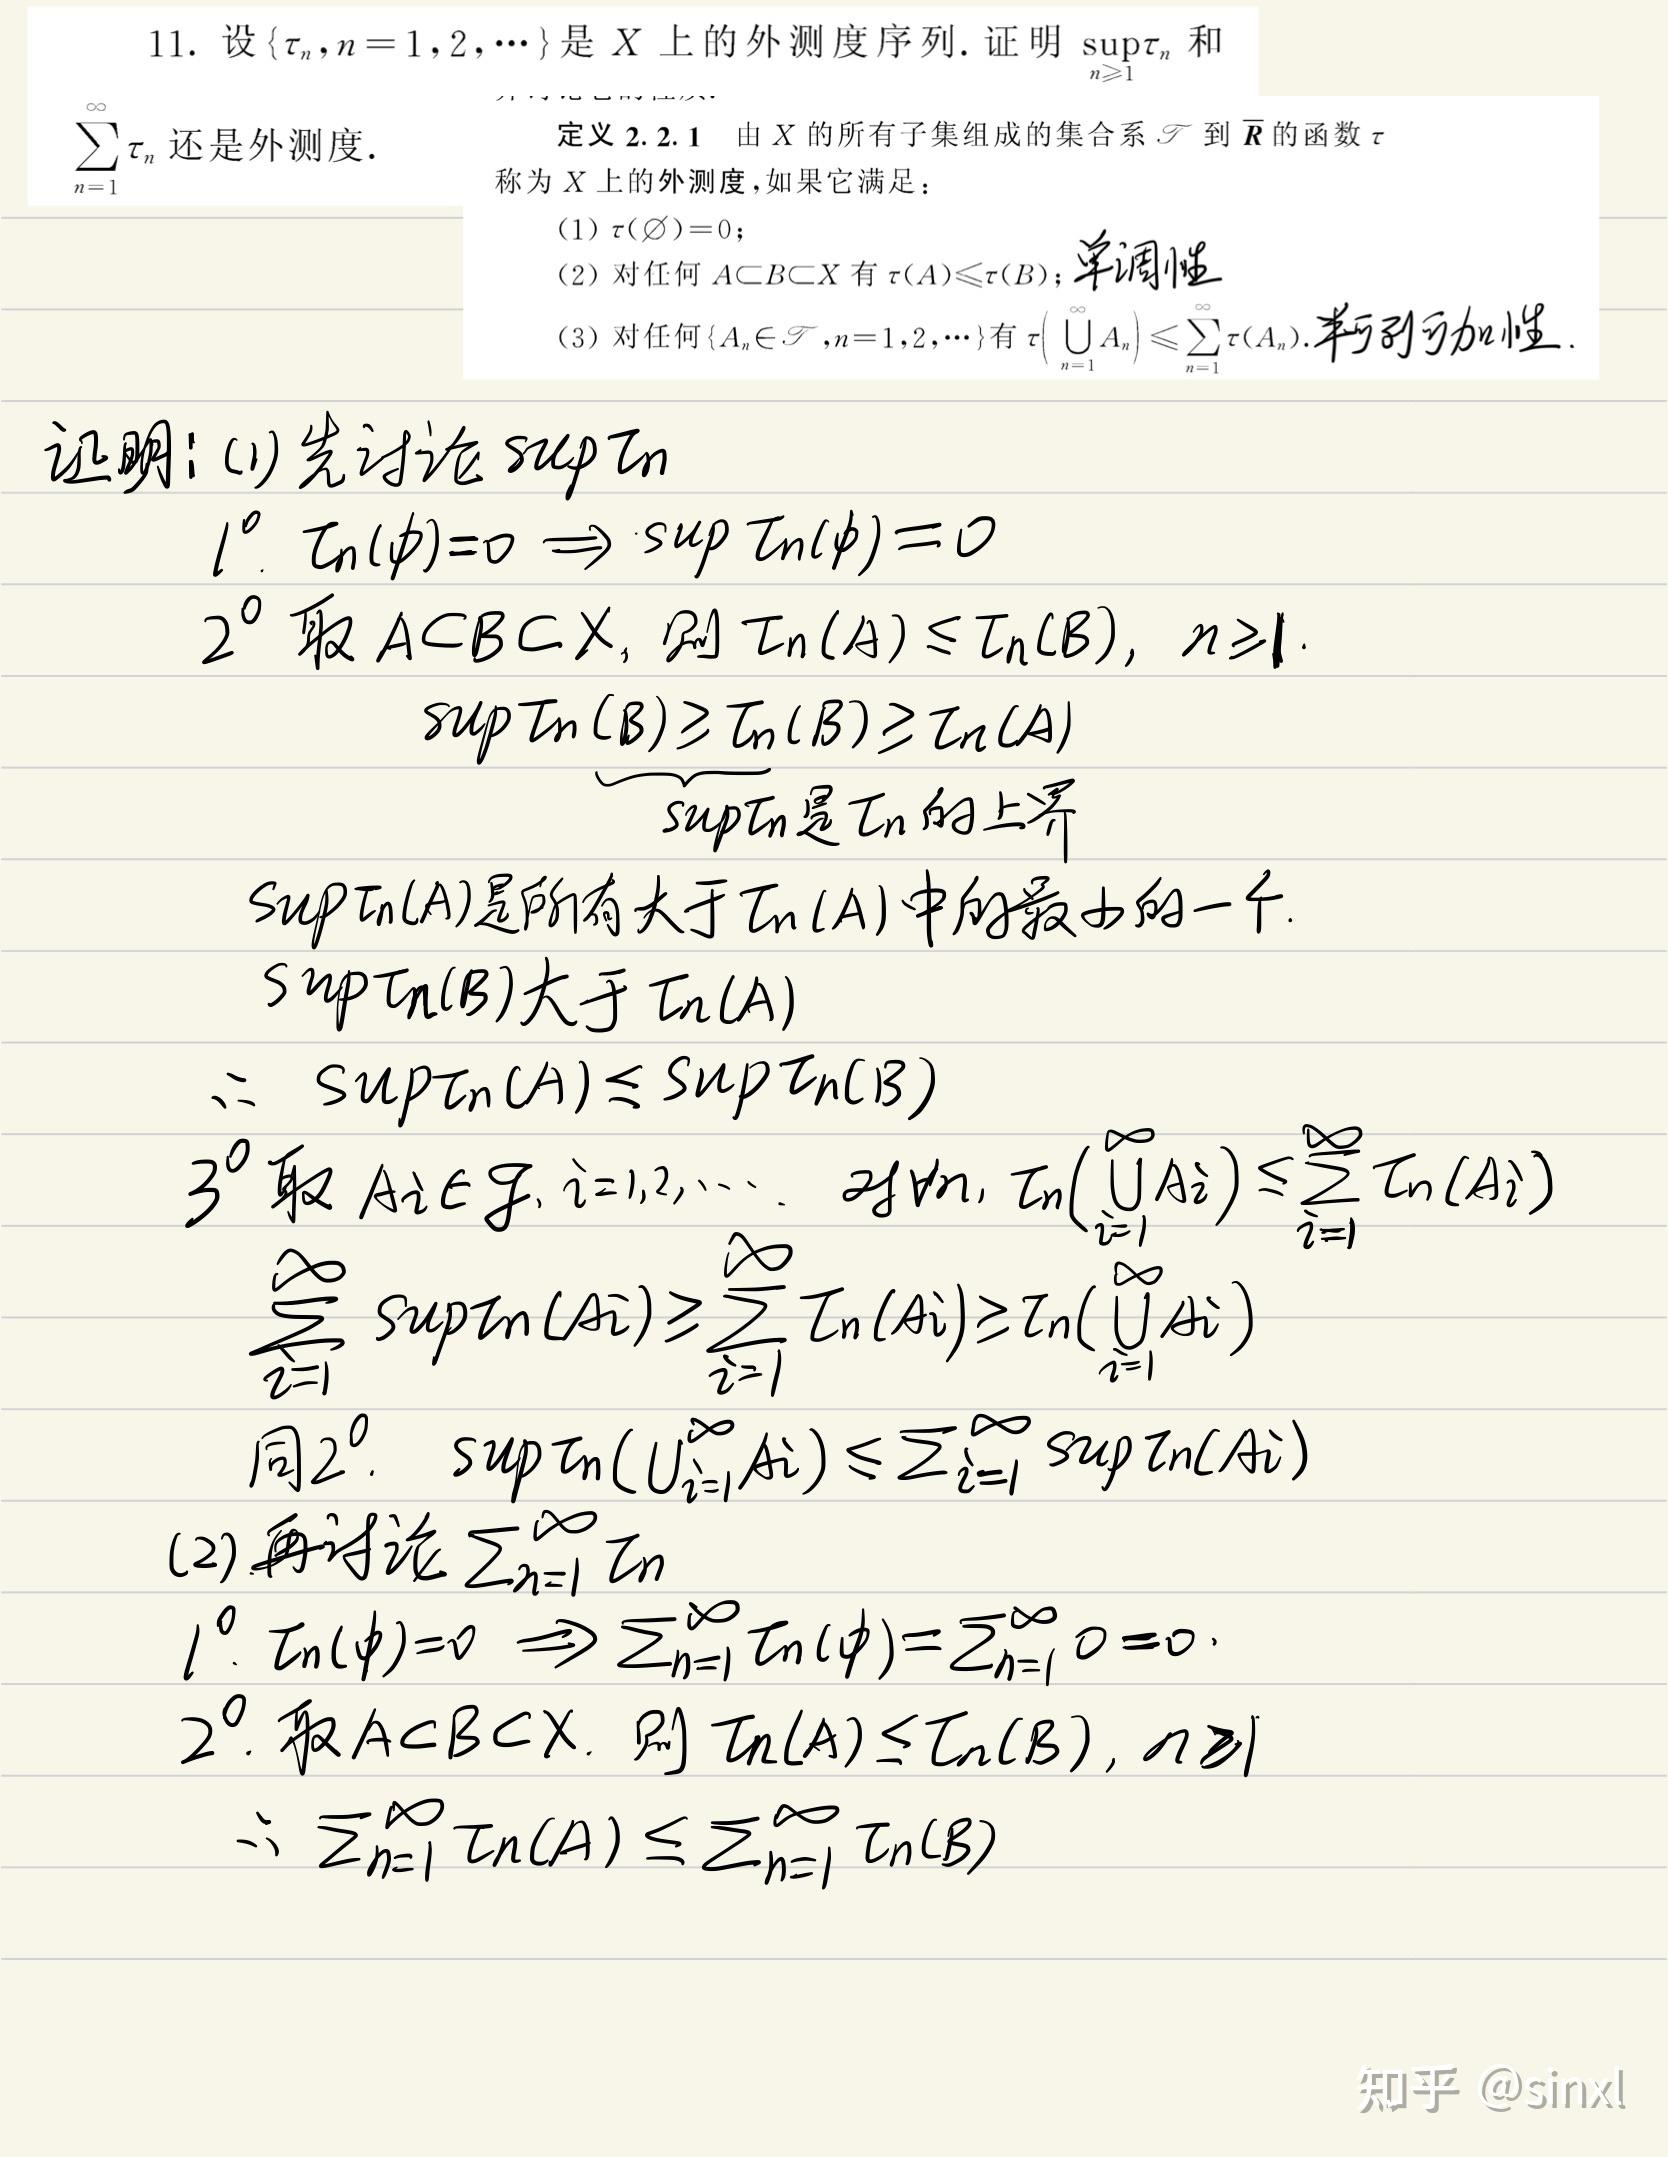 11. 设{τₙ, n=1,2,⋯}是 X 上的外测度序列. 证明 sup_{n≥1} τₙ 和
∑_{n=1}^{∞} τₙ 还是外测度.
定义 2.2.1 由 X 的所有子集组成的集合系 𝒯 到 R̄ 的函数 τ
称为 X 上的外测度,如果它满足:
(1) τ(∅)=0;
(2) 对任何 A⊂B⊂X 有 τ(A)≤τ(B); 单调性
(3) 对任何{Aₙ∈𝒯, n=1,2,⋯}有 τ(⋃_{n=1}^{∞} Aₙ)≤∑_{n=1}^{∞} τ(Aₙ). 半可列可加性.
证明: (1) 先讨论 sup τₙ
1⁰. τₙ(φ)=0 ⇒ sup τₙ(φ)=0
2⁰ 取 A⊂B⊂X, 则 τₙ(A)≤τₙ(B), n≥1.
sup τₙ(B)≥τₙ(B)≥τₙ(A)
sup τₙ是τₙ的上界
sup τₙ(A)是所有大于τₙ(A)中的最小的一个.
sup τₙ(B)大于τₙ(A)
∴ sup τₙ(A)≤sup τₙ(B)
3⁰ 取 Ai∈𝒯, i=1,2,⋯. 对∀n, τₙ(⋃_{i=1}^{∞} Ai)≤∑_{i=1}^{∞} τₙ(Ai)
∑_{i=1}^{∞} sup τₙ(Ai)≥∑_{i=1}^{∞} τₙ(Ai)≥τₙ(⋃_{i=1}^{∞} Ai)
同2⁰. sup τₙ(⋃_{i=1}^{∞} Ai)≤∑_{i=1}^{∞} sup τₙ(Ai)
(2) 再讨论 ∑_{n=1}^{∞} τₙ
1⁰. τₙ(φ)=0 ⇒ ∑_{n=1}^{∞} τₙ(φ)=∑_{n=1}^{∞} 0=0.
2⁰. 取A⊂B⊂X. 则 τₙ(A)≤τₙ(B), n≥1
∴ ∑_{n=1}^{∞} τₙ(A)≤∑_{n=1}^{∞} τₙ(B)
知乎 @sinxl